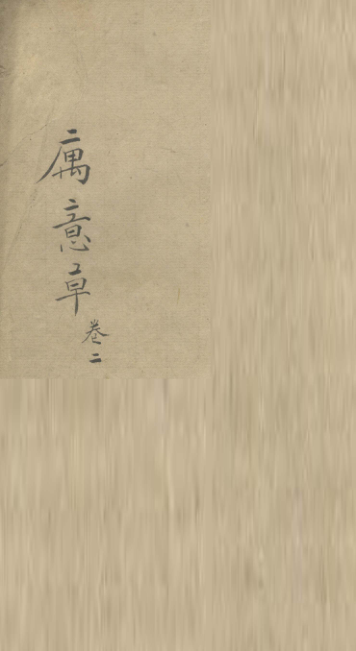 庽意草
卷二